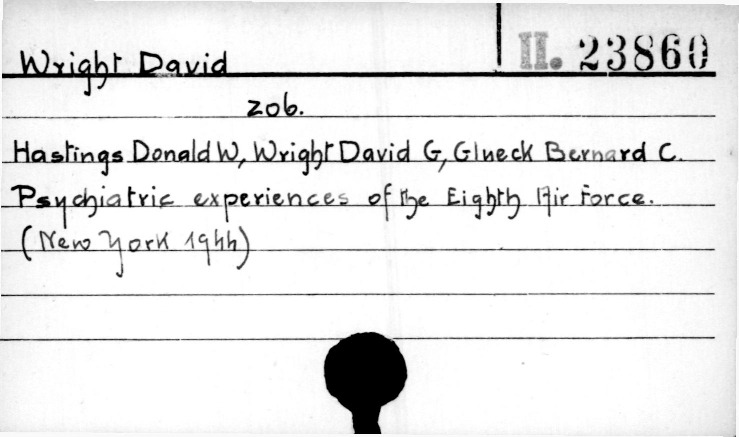 Wright David
II. 23860
zob.
Hastings Donald W, Wright David G, Glueck Bernard C.
Psychiatric experiences of the Eighth Air Force.
(New York 1944)